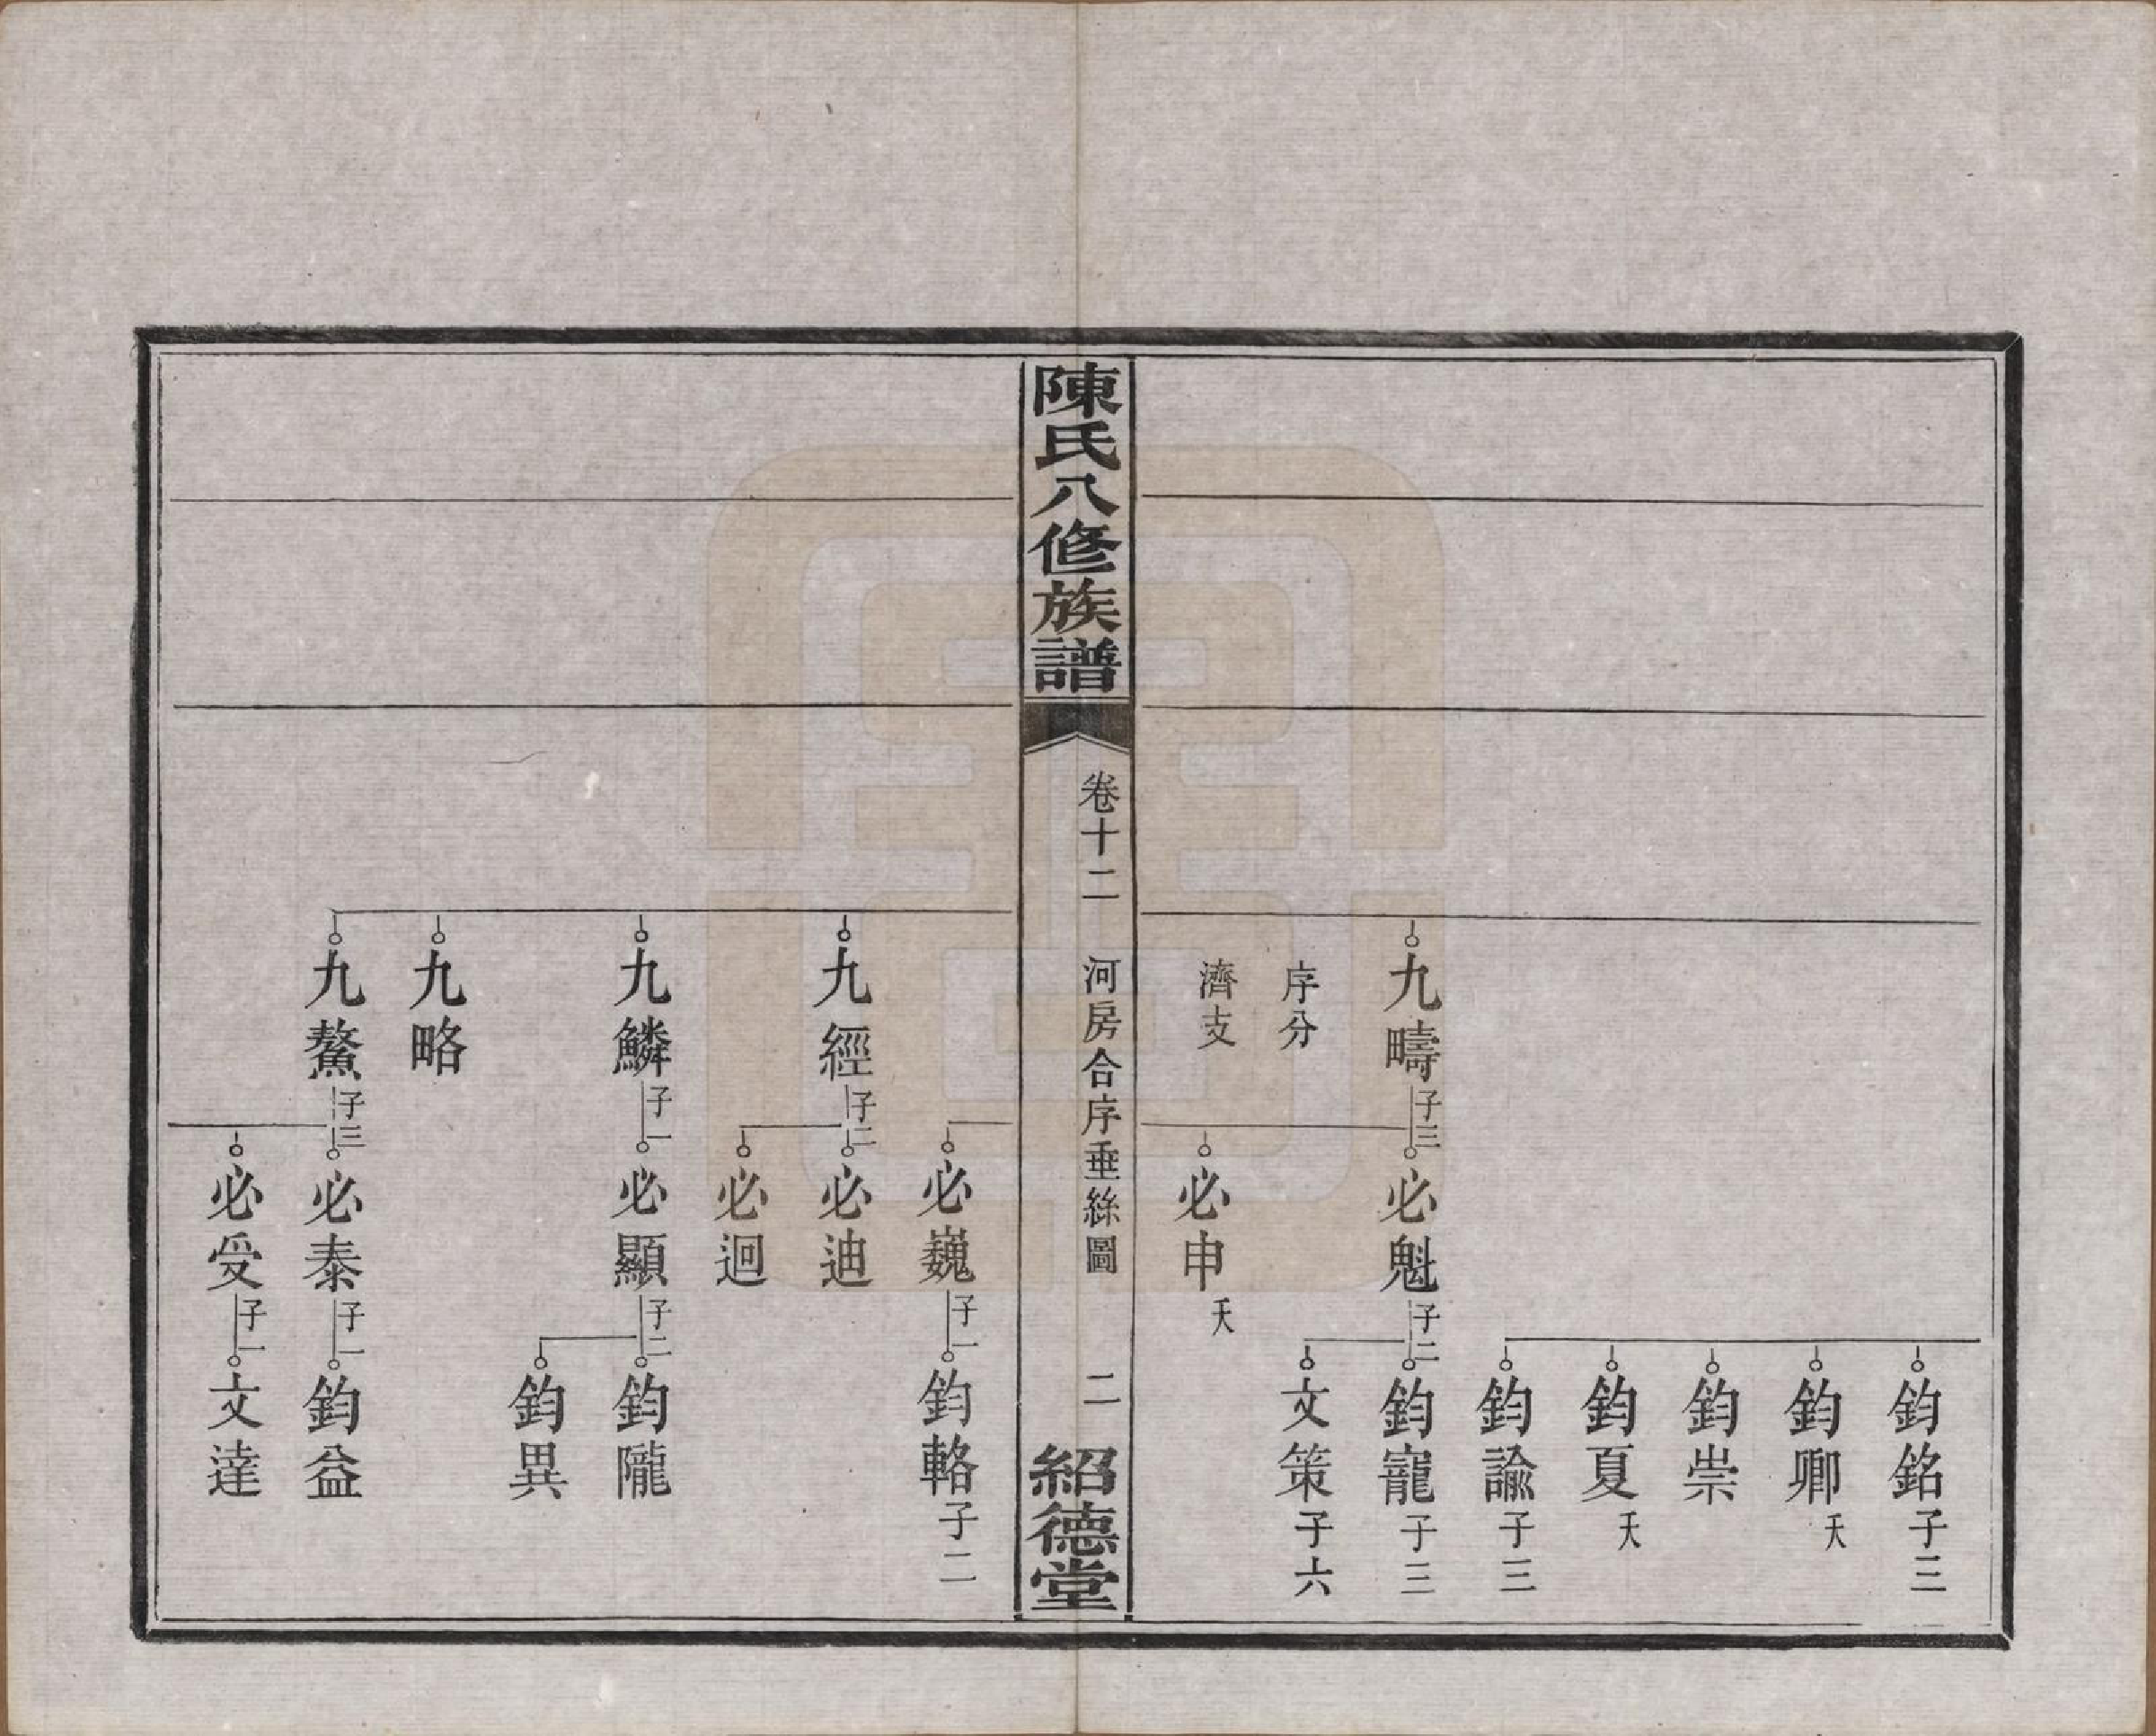 鈞銘子三
鈞卿夭
鈞崇
鈞夏夭
鈞諭子三
九疇子三
必魁子二
鈞寵子三
序分
文策子六
濟支
必申夭
陳氏八修族譜
卷十二
河房合序垂絲圖
二
紹德堂
必巍子一
鈞輅子二
九經子二
必迪
必迴
九鱗子一
必顯子二
鈞隴
鈞異
九略
九鰲子三
必泰子一
鈞益
必受子一
文達